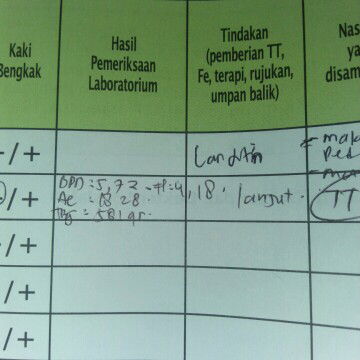 Kaki
Bengkak
Hasil
Pemeriksaan
Laboratorium
Tindakan
(pemberian TT,
Fe, terapi, rujukan,
umpan balik)
Nas
ya
disam
-/+
-/+
BPD : 5,72
4,18.
Ac = 18 28
= 581 gr.
lanjut.
TT
-/+
/+
/+